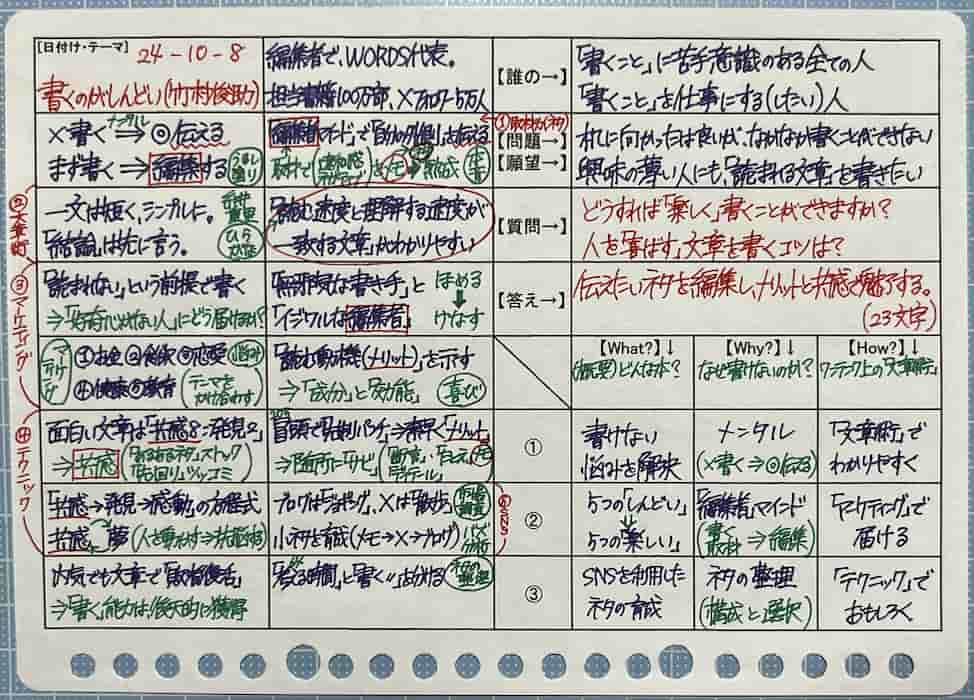 【日付け・テーマ】 24-10-8
書くのがしんどい(竹村俊助)
編集者で、WORDS代表。
担当書籍100万部、Xフォロワー5万人
【誰の→】
「書くこと」に苦手意識のある全ての人
「書くこと」を仕事にする(したい)人
メンタル
×書く⇒◎伝える
まず書く⇒編集する
①取材力(ネタ)
編集者マインドで「自分の外側」を伝える
取材で
メモ
熟成
【問題→】
【願望→】
机に向かったは良いが、なかなか書くことができない
興味の薄い人にも、「読まれる文章」を書きたい
②文章術
一文は短く、シンプルに。
「結論」は先に言う。
「読む速度と理解する速度が
一致する文章」がわかりやすい
【質問→】
どうすれば「楽しく」書くことができますか?
人を「喜ばす」文章を書くコツは?
③マーケティング
「読まれない」という前提で書く
⇒「好奇心がない人」にどう届けるか?
「無邪気な書き手」と
「イジワルな編集者」
ほめる
↓
けなす
【答え→】
伝えたいネタを編集し、メリットと共感で魅了する。
(23文字)
マーケティング
①お金②食欲③恋愛 悩み
④健康⑤教育 (テーマをかけ合わす)
「読む動機(メリット)」を示す
⇒「成分」と「効能」 喜び
【What?】↓
(概要)どんな本?
【Why?】↓
なぜ書けないのか?
【How?】↓
ワーディング上の「文章術」
④テクニック
面白い文章は「共感8:発見2」
⇒共感(「あるあるネタ」ストック
「先回り」ツッコミ)
冒頭で「先制パンチ」⇒素早く「メリット」
⇒随所に「サビ」
①
書けない
悩みを解決
メンタル
(×書く⇒◎伝える)
「文章術」で
わかりやすく
「共感→発見→感動」の方程式
共感、夢
ブログは「ジョギング」、Xは「散歩」
小ネタを育成(メモ→X→ブログ)
⑤SNS
②
5つの「しんどい」
↓
5つの「楽しい」
「編集者」マインド
(書く・取材⇒編集)
「マーケティング」で
届ける
内気でも文章で「敗者復活」
⇒「書く」能力は、後天的に獲得
「考える時間」と「書く〃」と分ける ネタの整理
③
SNSを利用した
ネタの育成
ネタの整理
(構成と選択)
「テクニック」で
おもしろく